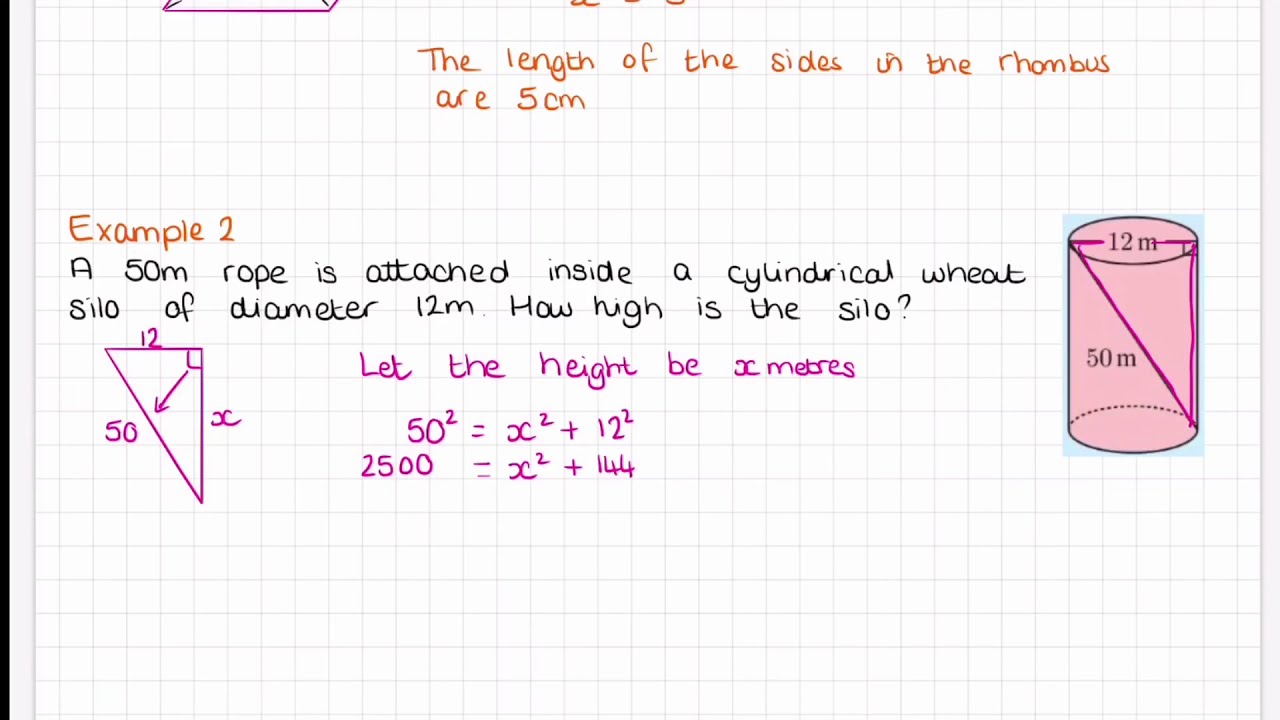 The length of the sides in the rhombus
are 5cm
Example 2
A 50m rope is attached inside a cylindrical wheat
silo of diameter 12m. How high is the silo?
12
50
x
Let the height be x metres
50² = x² + 12²
2500 = x² + 144
12 m
50 m